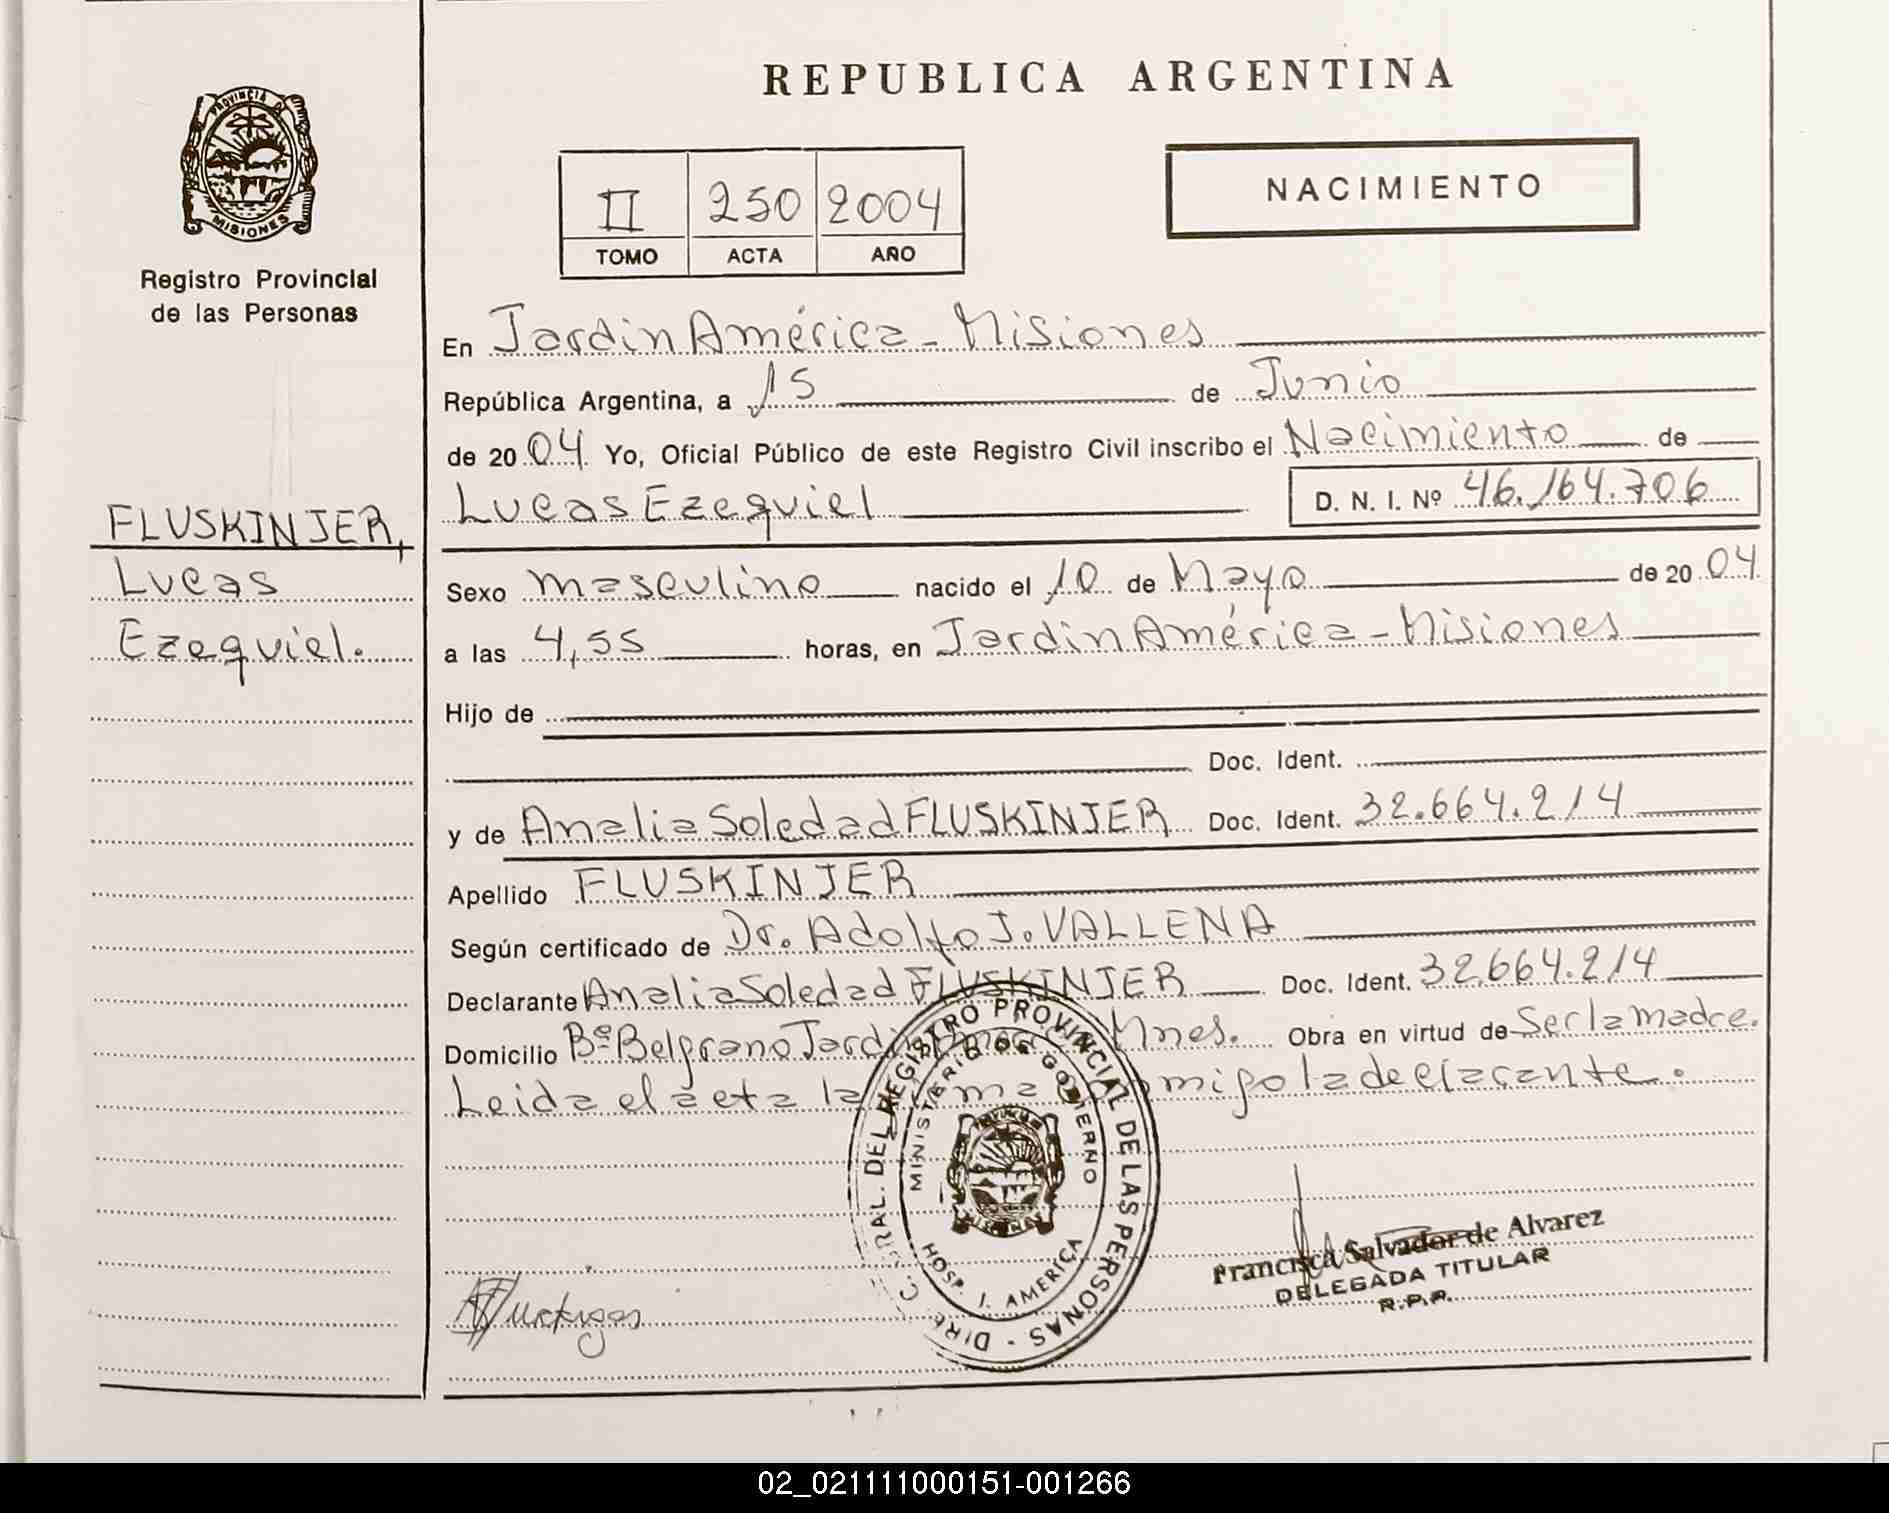 REPUBLICA ARGENTINA
PROVINCIA DE MISIONES
Registro Provincial
de las Personas
II 250 2004
TOMO ACTA AÑO
NACIMIENTO
FLUSKINJER,
Lucas
Ezequiel.
En Jardin América - Misiones
República Argentina, a 15 de Junio
de 2004 Yo, Oficial Público de este Registro Civil inscribo el Nacimiento de
Lucas Ezequiel D. N. I. Nº 46.164.706
Sexo masculino nacido el 10 de Mayo de 2004
a las 4,55 horas, en Jardin América - Misiones
Hijo de
Doc. Ident.
y de Analia Soledad FLUSKINJER Doc. Ident. 32.664.214
Apellido FLUSKINJER
Según certificado de Dr. Adolfo J. VALLENA
Declarante Analia Soledad FLUSKINJER Doc. Ident. 32.664.214
Domicilio Bº Belgrano Jardin Mnes. Obra en virtud de Ser la madre.
Leida el acta la firma con migo la declarante.
DEL REGISTRO PROVINCIAL DE LAS PERSONAS
MINISTERIO DE GOBIERNO
HOSP. J. AMERICA
Francisca Salvador de Alvarez
DELEGADA TITULAR
R.P.P.
02_021111000151-001266